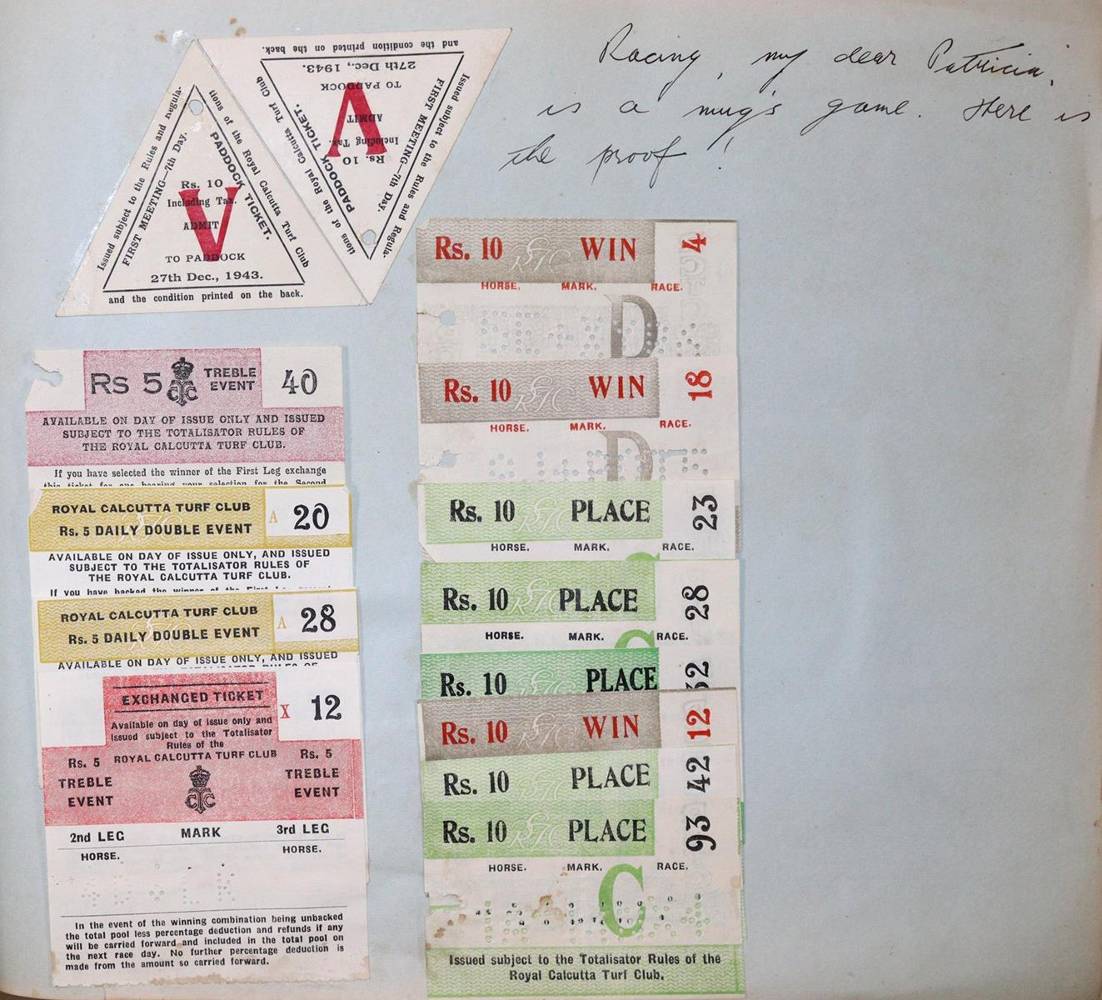 Racing, my dear Patricia,
is a mug's game. Here is
the proof!
Issued subject to the Rules and Regula-
tions of the Royal Calcutta Turf Club
and the condition printed on the back.
FIRST MEETING—7th Day.
PADDOCK TICKET.
Rs. 10
Including Tax.
V
ADMIT
TO PADDOCK
27th Dec., 1943.
Issued subject to the Rules and Regula-
tions of the Royal Calcutta Turf Club
and the condition printed on the back.
FIRST MEETING—7th Day.
PADDOCK TICKET.
Rs. 10
Including Tax.
V
ADMIT
TO PADDOCK
27th Dec., 1943.
Rs 5 TREBLE EVENT 40
AVAILABLE ON DAY OF ISSUE ONLY AND ISSUED
SUBJECT TO THE TOTALISATOR RULES OF
THE ROYAL CALCUTTA TURF CLUB.
If you have selected the winner of the First Leg exchange
this ticket for one bearing your selection for the Second
ROYAL CALCUTTA TURF CLUB
Rs. 5 DAILY DOUBLE EVENT A 20
AVAILABLE ON DAY OF ISSUE ONLY, AND ISSUED
SUBJECT TO THE TOTALISATOR RULES OF
THE ROYAL CALCUTTA TURF CLUB.
If you have backed the winner of the First Leg
ROYAL CALCUTTA TURF CLUB
Rs. 5 DAILY DOUBLE EVENT A 28
AVAILABLE ON DAY OF ISSUE ONLY, AND ISSUED
EXCHANGED TICKET X 12
Available on day of issue only and
issued subject to the Totalisator
Rules of the
ROYAL CALCUTTA TURF CLUB
Rs. 5 TREBLE EVENT
Rs. 5 TREBLE EVENT
2nd LEG MARK 3rd LEG
HORSE. HORSE.
In the event of the winning combination being unbacked
the total pool less percentage deduction and refunds if any
will be carried forward and included in the total pool on
the next race day. No further percentage deduction is
made from the amount so carried forward.
Rs. 10 WIN 4
HORSE. MARK. RACE.
D
Rs. 10 WIN 18
HORSE. MARK. RACE.
D
Rs. 10 PLACE 23
HORSE. MARK. RACE.
Rs. 10 PLACE 28
HORSE. MARK. RACE.
Rs. 10 PLACE 32
Rs. 10 WIN 12
Rs. 10 PLACE 42
Rs. 10 PLACE 93
HORSE. MARK. RACE.
C
Issued subject to the Totalisator Rules of the
Royal Calcutta Turf Club.